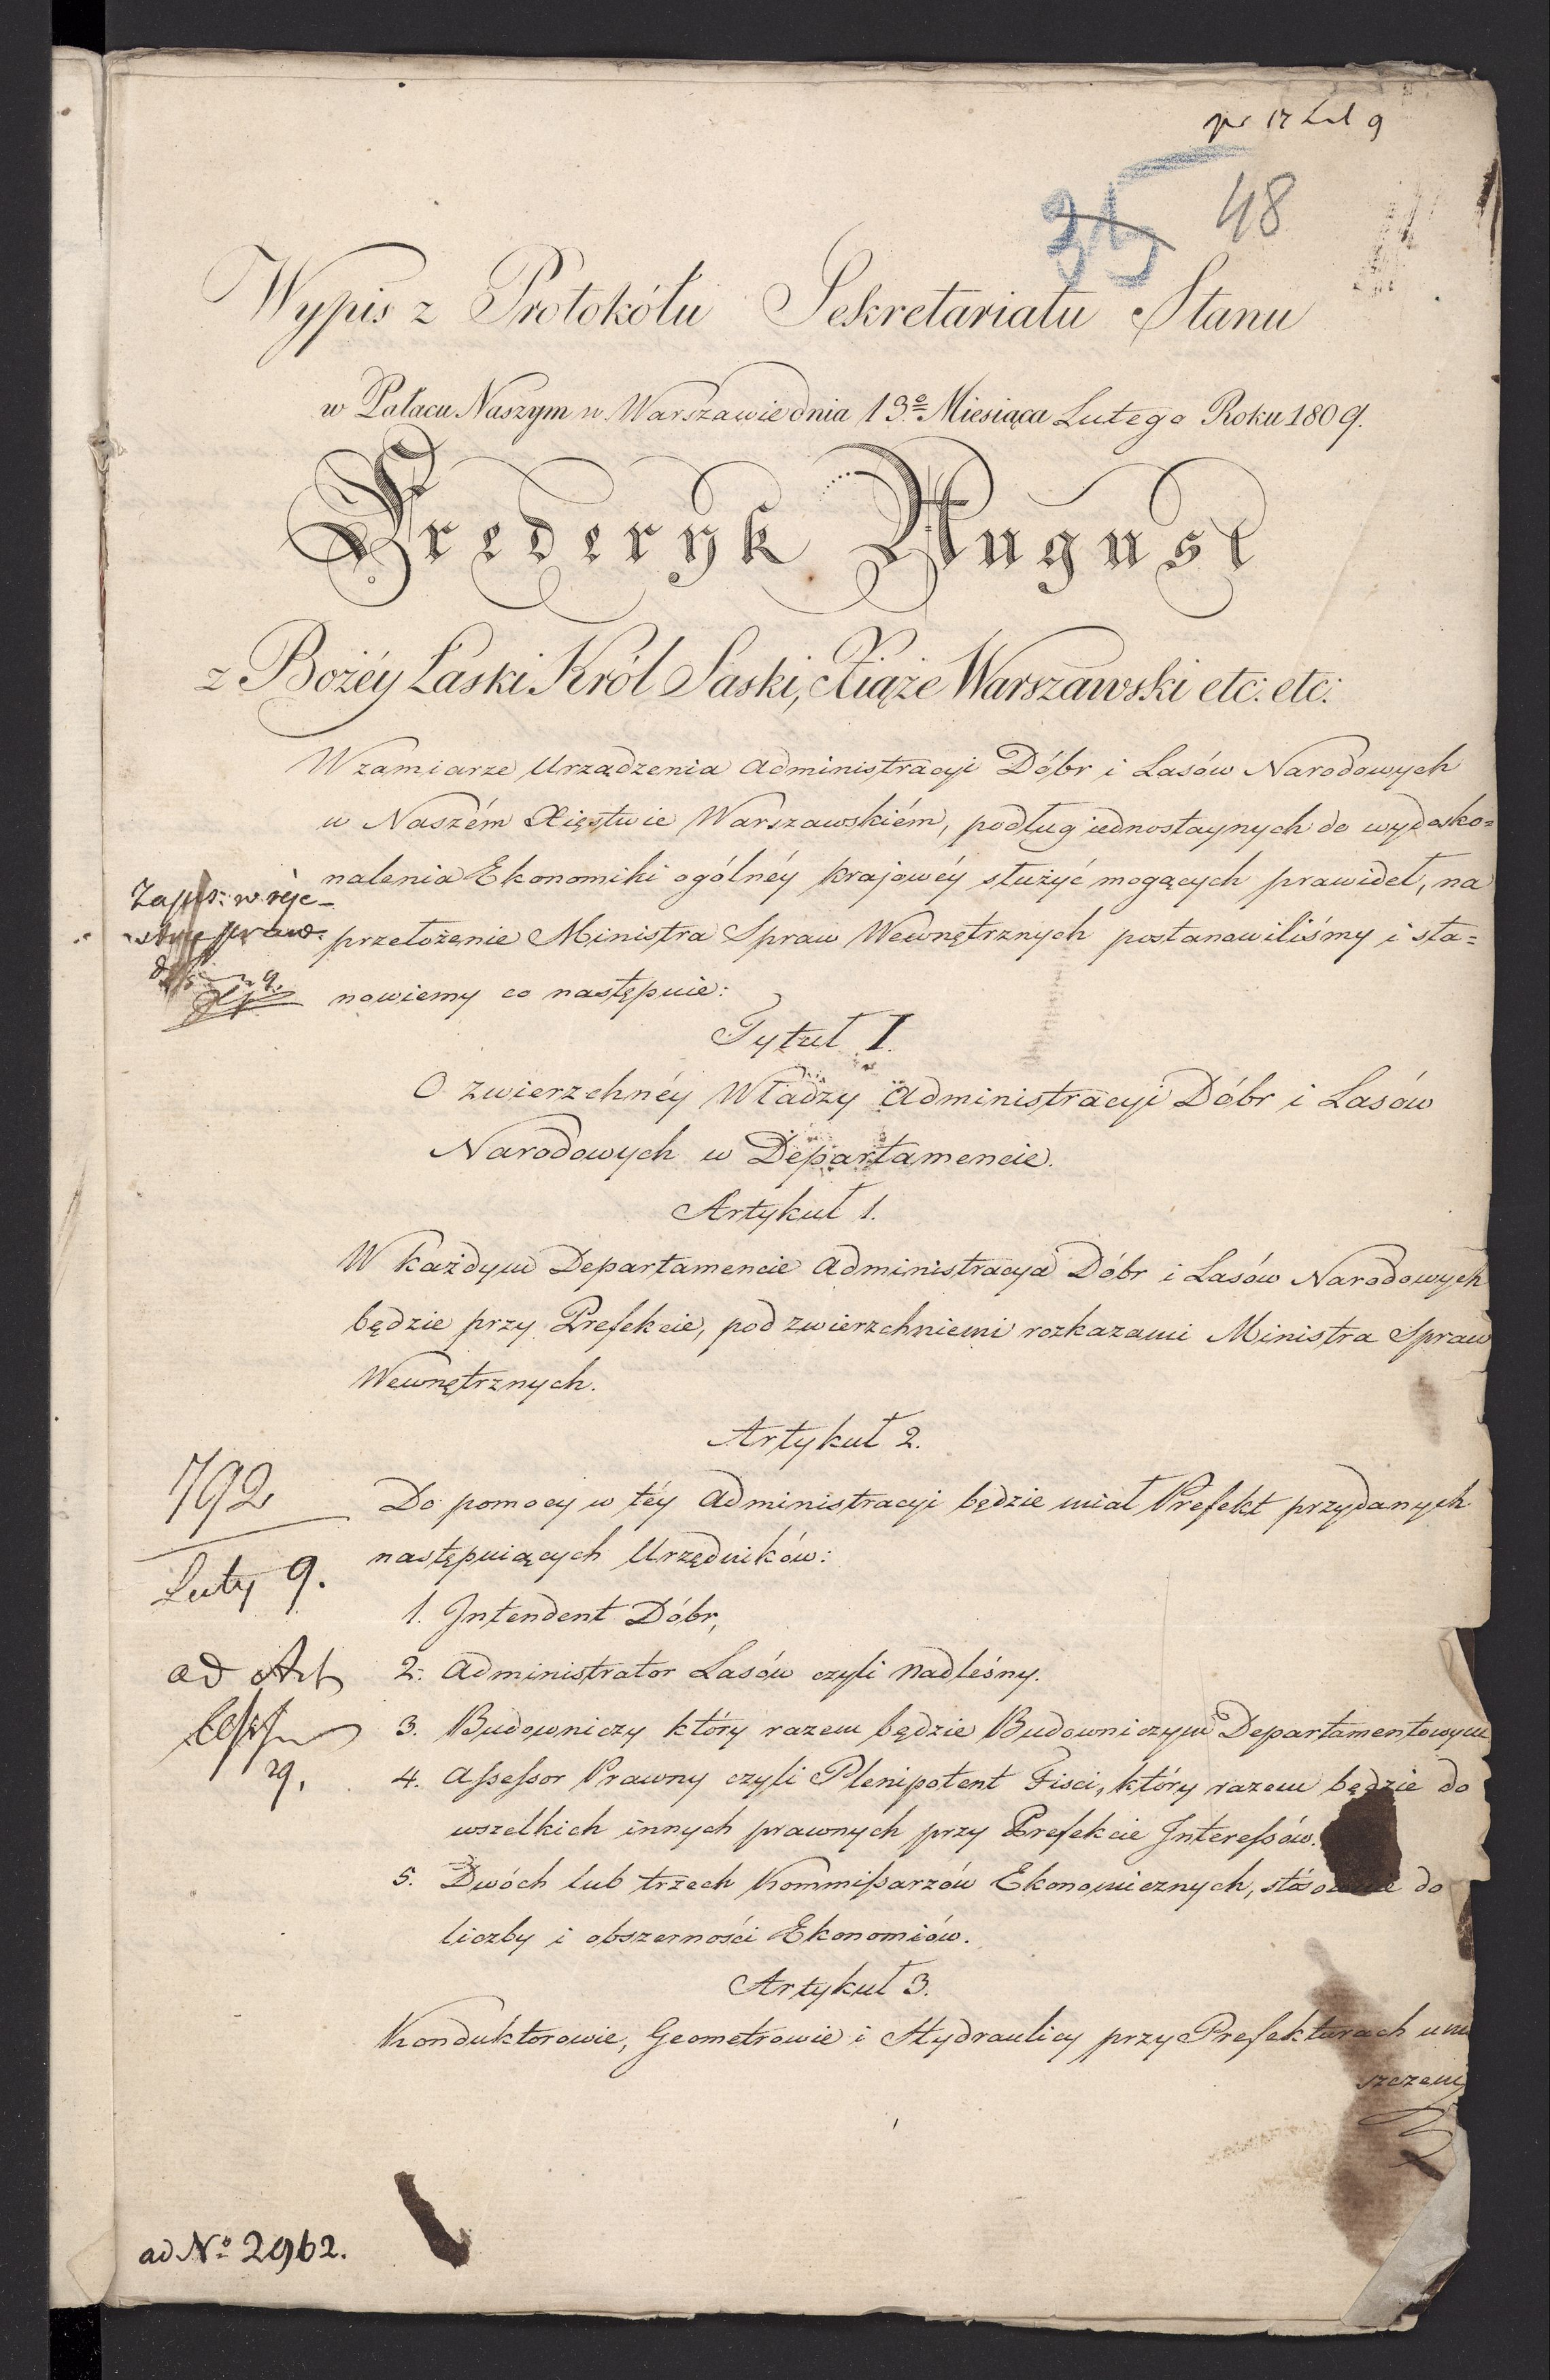 pr 17 Lut 9
35 48
Wypis z Protokółu Sekretariatu Stanu
w Pałacu Naszym w Warszawie dnia 13º Miesiąca Lutego Roku 1809.
Frederyk August
z Bożéy Łaski Król Saski, Xiąże Warszawski etc: etc:
W zamiarze Urządzenia Administracyi Dóbr i Lasów Narodowych
w Naszém Xięstwie Warszawskiém, podług iednostaynych do wydosko=
nalenia Ekonomiki ogólnéy krajowéy służyć mogących prawideł, na
przełożenie Ministra Spraw Wewnętrznych postanowiliśmy i sta=
nowiemy co następuie:
Zapis: w reje-
Tytuł I.
O zwierzchnéy Władzy Administracyi Dóbr i Lasów
Narodowych w Departamencie.
Artykuł 1.
W każdym Departamencie Administracya Dóbr i Lasów Narodowych
będzie przy Prefekcie, pod zwierzchniemi rozkazami Ministra Spraw
Wewnętrznych.
Artykuł 2.
Do pomocy w téy Administracyi będzie miał Prefekt przydanych
następuiących Urzędników:
1. Intendent Dóbr,
2. Administrator Lasów czyli Nadleśny.
3. Budowniczy który razem będzie Budowniczym Departamentowym
4. Assessor Prawny czyli Plenipotent Fisci, który razem będzie do
wszelkich innych prawnych przy Prefekcie Interessów.
5. Dwóch lub trzech Kommissarzów Ekonomicznych, stósownie do
liczby i obszerności Ekonomiów.
792
Luty 9.
ad Art
29.
Artykuł 3.
Konduktorowie, Geometrowie i Hydraulicy przy Prefekturach um
szczeni
ad Nº 2962.